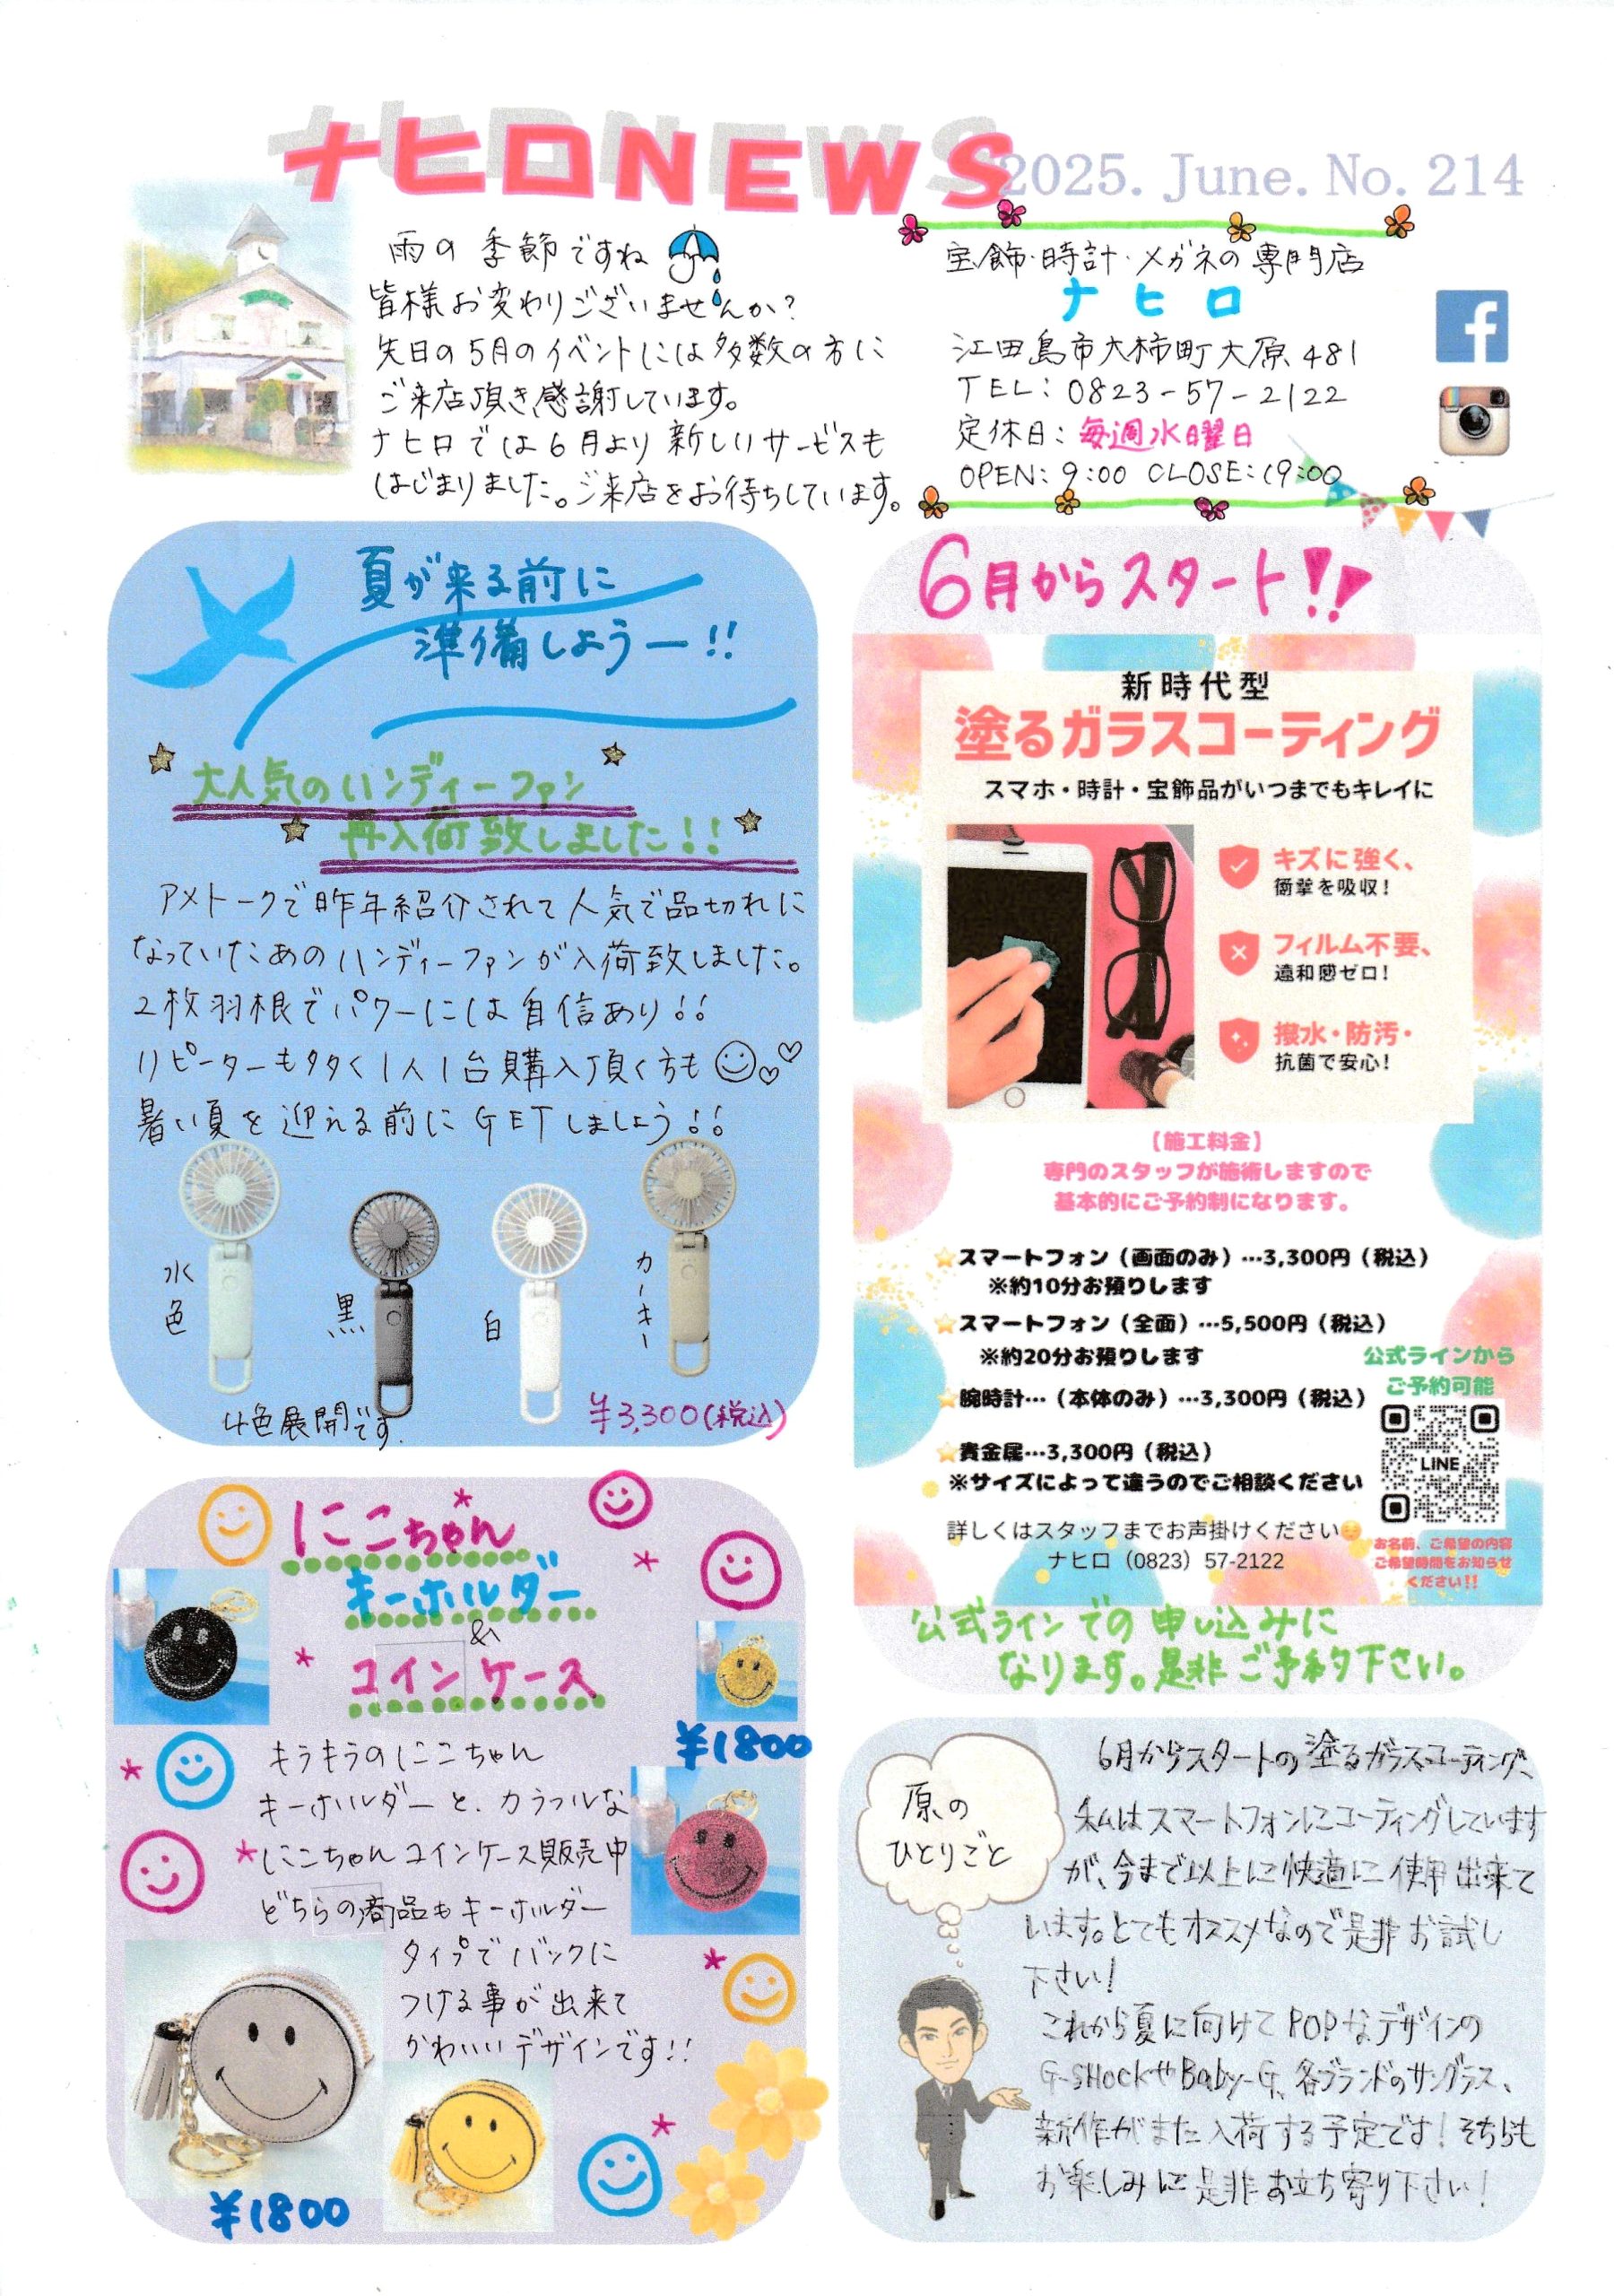 ナヒロNEWS
2025. June. No. 214
雨の季節ですね
皆様お変わりございませんか?
先日の5月のイベントには多数の方に
ご来店頂き感謝しています。
ナヒロでは6月より新しいサービスも
はじまりました。ご来店をお待ちしています。
宝飾・時計・メガネの専門店
ナヒロ
江田島市大柿町大原481
TEL: 0823-57-2122
定休日: 毎週水曜日
OPEN: 9:00 CLOSE: 19:00
夏が来る前に
準備しようー!!
大人気のハンディーファン
再入荷致しました!!
アメトークで昨年紹介されて人気で品切れに
なっていたあのハンディーファンが入荷致しました。
2枚羽根でパワーには自信あり!!
リピーターも多く1人1台購入頂く方も
暑い夏を迎える前にGETしましょう!!
水色
黒
白
カーキー
4色展開です.
¥3,300(税込)
6月からスタート!!
新時代型
塗るガラスコーティング
スマホ・時計・宝飾品がいつまでもキレイに
キズに強く、
衝撃を吸収!
フィルム不要、
違和感ゼロ!
撥水・防汚・
抗菌で安心!
【施工料金】
専門のスタッフが施術しますので
基本的にご予約制になります。
⭐スマートフォン（画面のみ）…3,300円（税込）
※約10分お預りします
⭐スマートフォン（全面）…5,500円（税込）
※約20分お預りします
⭐腕時計…（本体のみ）…3,300円（税込）
⭐貴金属…3,300円（税込）
※サイズによって違うのでご相談ください
公式ラインから
ご予約可能
LINE
お名前、ご希望の内容
ご希望時間をお知らせ
ください!!
詳しくはスタッフまでお声掛けください😊
ナヒロ（0823）57-2122
公式ラインでの申し込みに
なります。是非ご予約下さい。
にこちゃん
キーホルダー
&
コインケース
¥1800
キラキラのにこちゃん
キーホルダーと、カラフルな
にこちゃんコインケース販売中
どちらの商品もキーホルダー
タイプでバックに
つける事が出来て
かわいいデザインです!!
¥1800
原の
ひとりごと
6月からスタートの塗るガラスコーティング、
私はスマートフォンにコーティングしています
が、今まで以上に快適に使用出来て
います。とてもオススメなので是非お試し
下さい!
これから夏に向けてPOPなデザインの
G-SHockやBaby-G、各ブランドのサングラス、
新作がまた入荷する予定です!そちらも
お楽しみに是非お立ち寄り下さい!